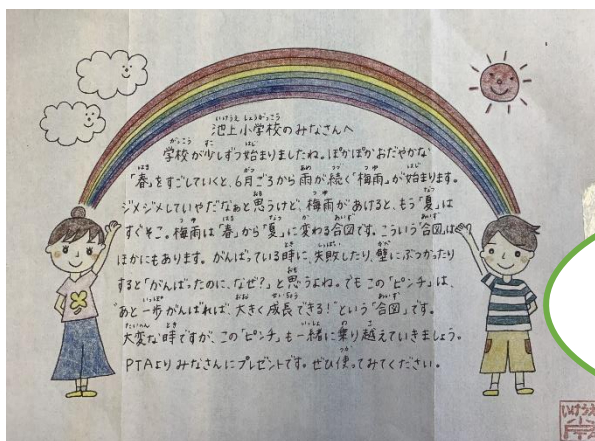 池上小学校のみなさんへ
学校が少しずつ始まりましたね。ぽかぽかおだやかな
「春」をすごしていくと、6月ごろから雨が続く「梅雨」が始まります。
ジメジメしていやだなぁと思うけど、梅雨があけると、もう「夏」は
すぐそこ。梅雨は「春」から「夏」に変わる合図です。こういう「合図」は
ほかにもあります。がんばっている時に、失敗したり、壁にぶつかったり
すると「がんばったのに、なぜ?」と思うよね。でもこの「ピンチ」は、
"あと一歩がんばれば、大きく成長できる!"という「合図」です。
大変な時ですが、この「ピンチ」も一緒に乗り越えていきましょう。
PTAよりみなさんにプレゼントです。ぜひ使ってみてください。
いけうえ